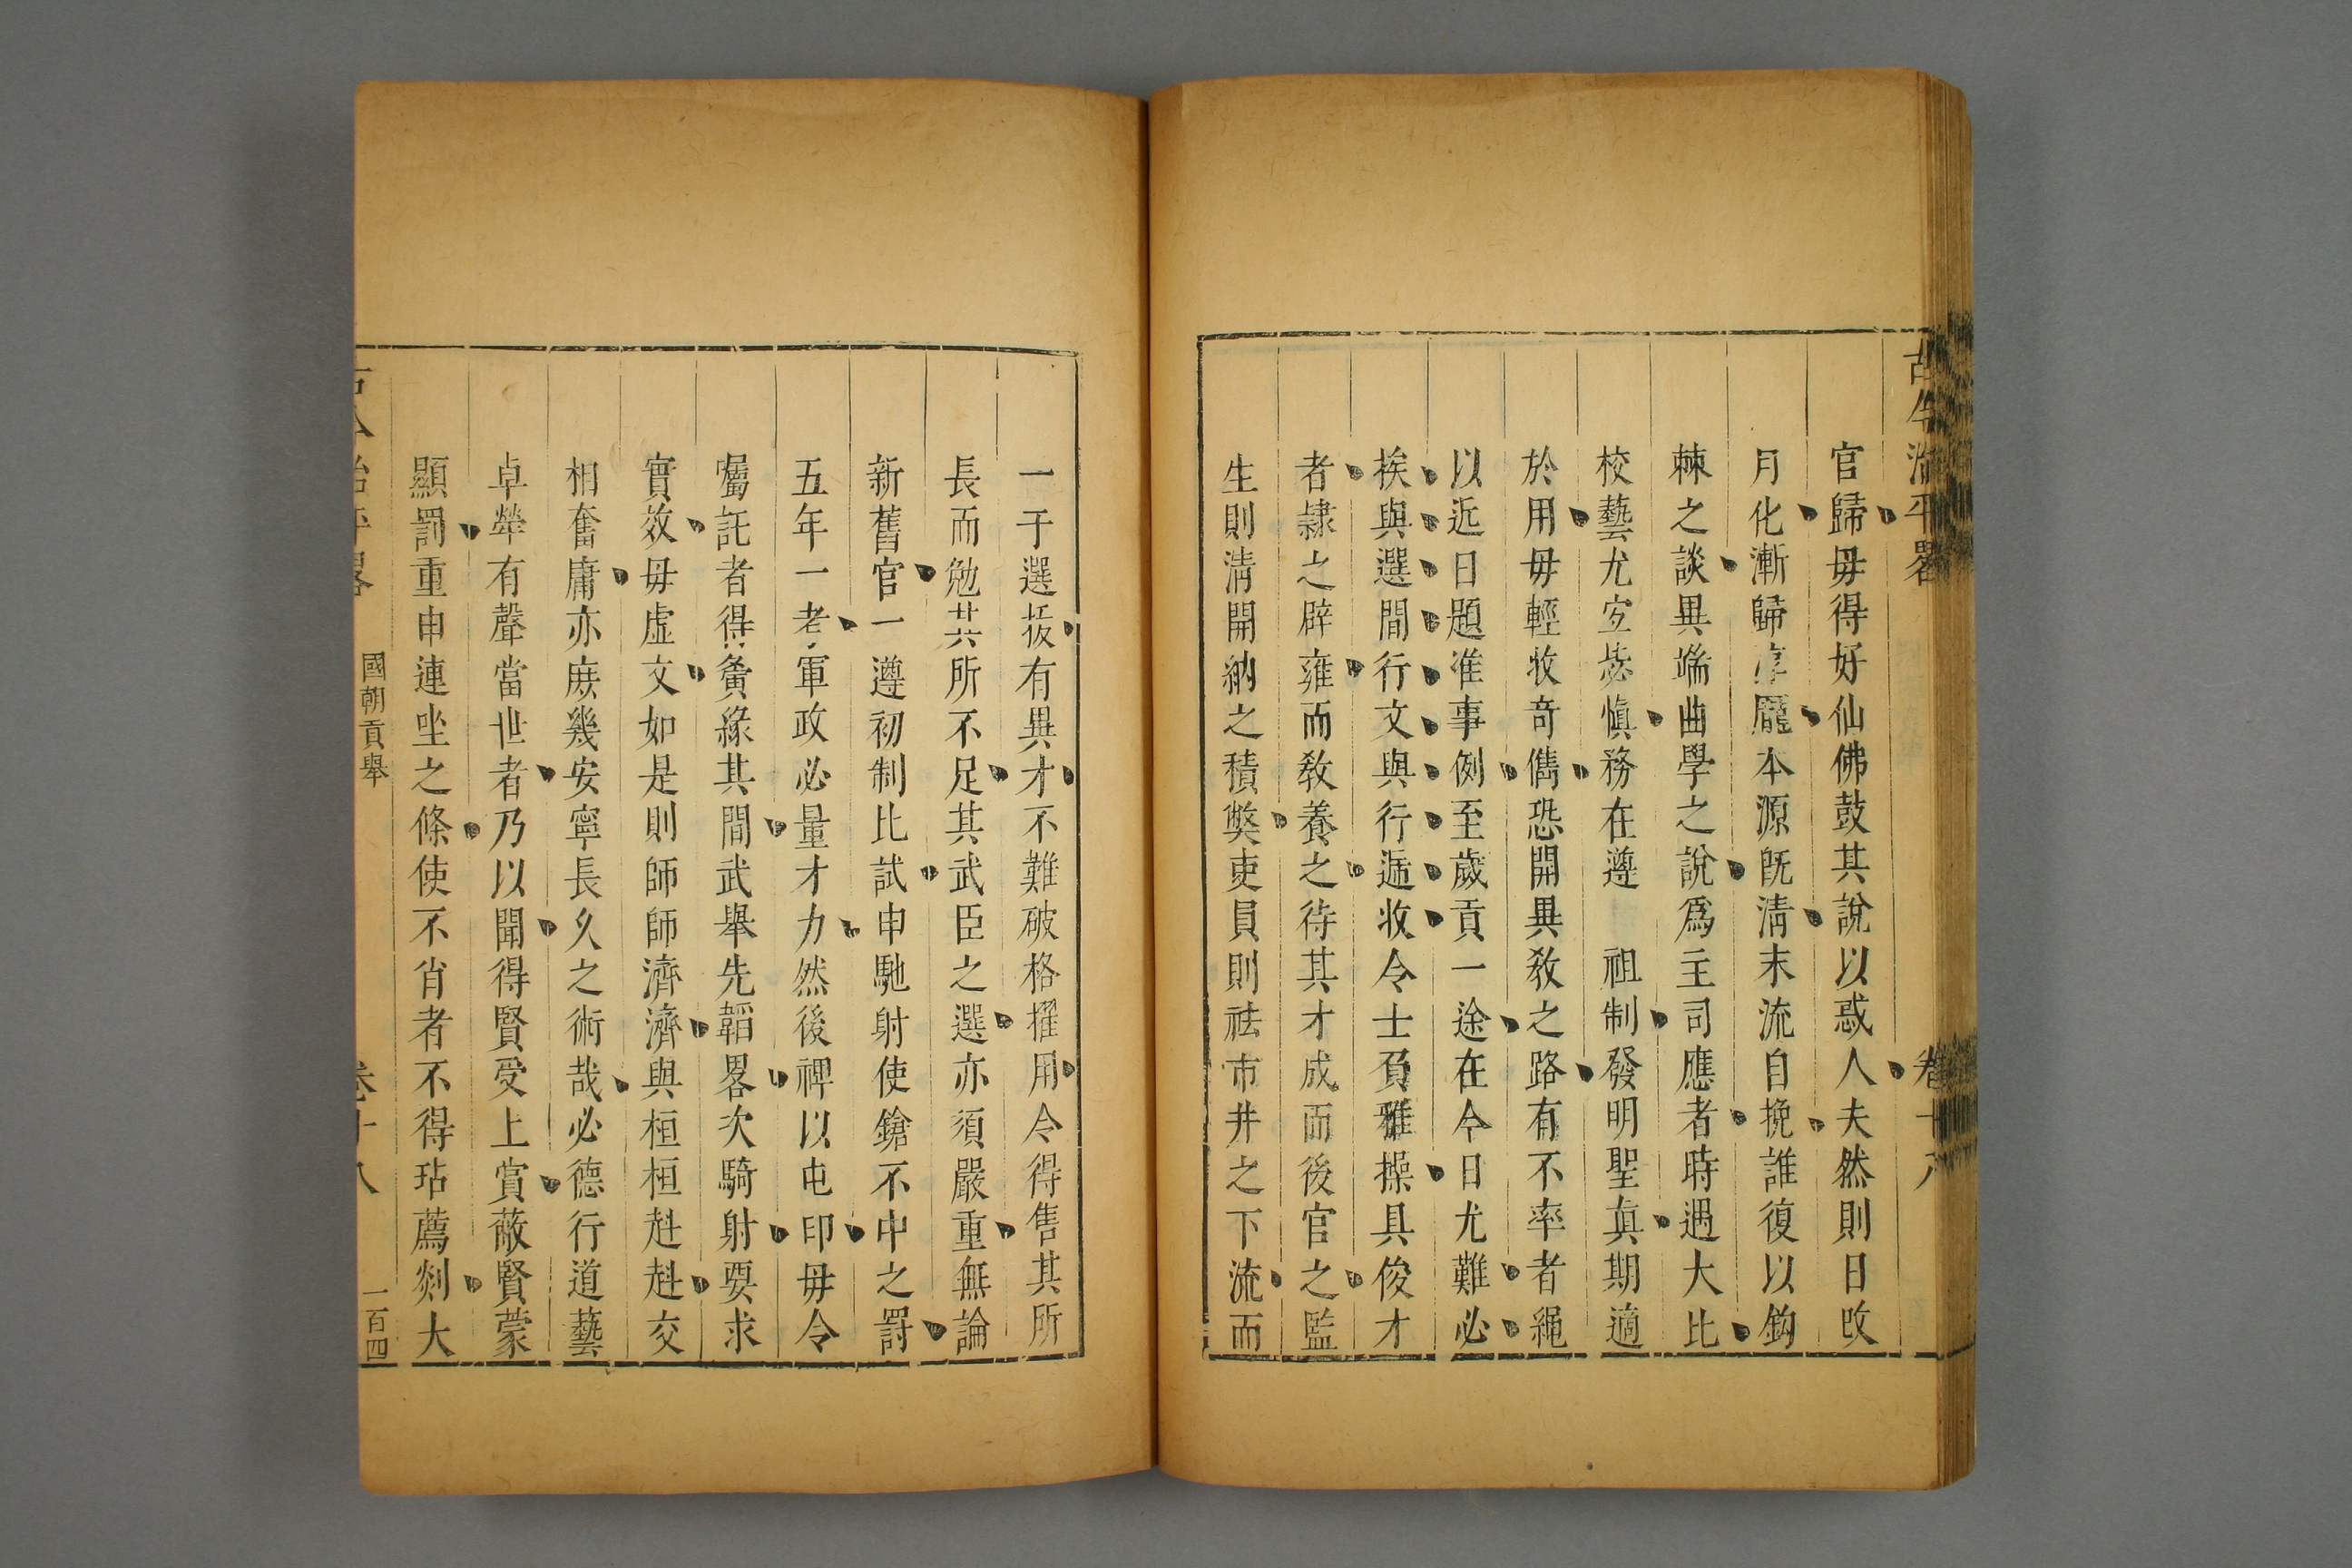 古今治平畧 卷十八
官歸毋得好仙佛鼓其說以惑人夫然則日改
月化漸歸淳龎本源旣淸末流自挽誰復以鈎
棘之談異端曲學之說爲主司應者時遇大比
校藝尤宜毖愼務在遵 祖制發明聖眞期適
於用毋輕收奇儁恐開異敎之路有不率者繩
以近日題准事例至歲貢一途在今日尤難必
挨與選間行文與行遞收令士負雅操具俊才
者隷之辟雍而敎養之待其才成而後官之監
生則淸開納之積獘吏員則祛市井之下流而
一于選拔有異才不難破格擢用令得售其所
長而勉其所不足其武臣之選亦須嚴重無論
新舊官一遵初制比試申馳射使鎗不中之罸
五年一考軍政必量才力然後裨以屯印毋令
囑託者得夤緣其間武舉先韜畧次騎射要求
實效毋虛文如是則師師濟濟與桓桓赳赳交
相奮庸亦庶幾安寧長久之術哉必德行道藝
卓犖有聲當世者乃以聞得賢受上賞蔽賢蒙
顯罰重申連坐之條使不肖者不得玷薦剡大
古今治平畧 國朝貢舉 卷十八 一百四